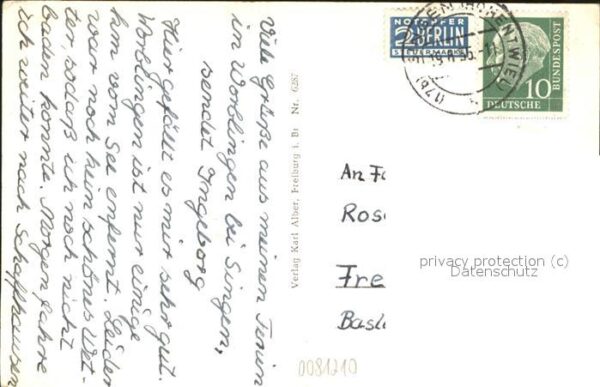 Viele Grüße aus meinen Ferien
in Worblingen bei Singen,
sendet Ingeborg
Hier gefällt es mir sehr gut.
Worblingen ist nur einige
km vom See enfernt. Leider
war noch kein schönes Wet-
ter, sodaß ich noch nicht
baden konnte. Morgen fahre
ich weiter nach Schaffhausen
Verlag Karl Alber, Freiburg i. Br. Nr. 6287
NOTOPFER
2 BERLIN
STEUERMARKE
SINGEN (HOHENTWIEL)
(17b)
10
DEUTSCHE
BUNDESPOST
An Fa
Rose
Fre
Basle
privacy protection (c)
Datenschutz
0081210